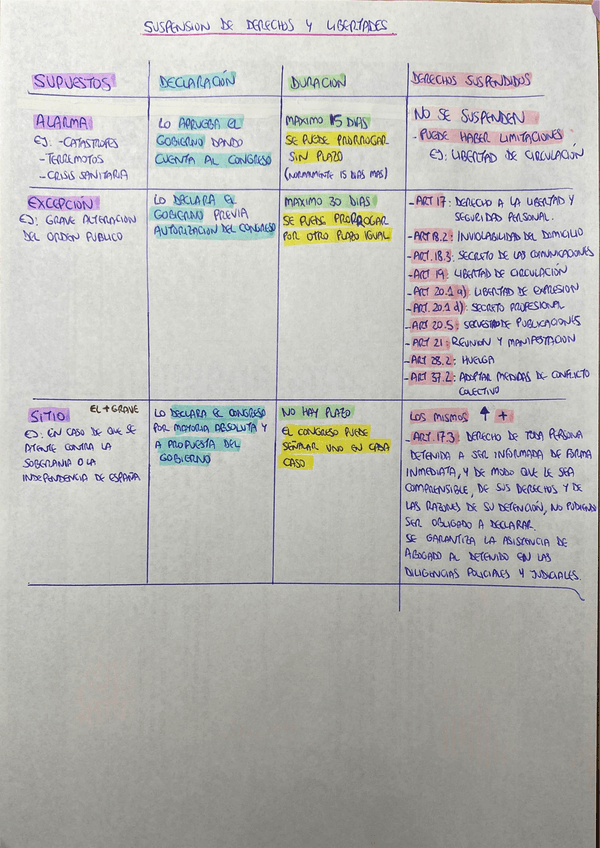 SUSPENSION DE DERECHOS Y LIBERTADES
SUPUESTOS
DECLARACIÓN
DURACION
DERECHOS SUSPENDIDOS
ALARMA
EJ: -CATASTROFES
-TERREMOTOS
-CRISIS SANITARIA
LO APRUEBA EL
GOBIERNO DANDO
CUENTA AL CONGRESO
MAXIMO 15 DIAS
SE PUEDE PRORROGAR
SIN PLAZO
(NORMALMENTE 15 DIAS MAS)
NO SE SUSPENDEN
-PUEDE HABER LIMITACIONES
EJ: LIBERTAD DE CIRCULACIÓN
EXCEPCIÓN
EJ: GRAVE ALTERACION
DEL ORDEN PUBLICO
LO DECLARA EL
GOBIERNO PREVIA
AUTORIZACION DEL CONGRESO
MAXIMO 30 DIAS
SE PUEDE PRORROGAR
POR OTRO PLAZO IGUAL
-ART 17: DERECHO A LA LIBERTAD Y
SEGURIDAD PERSONAL.
-ART 18.2: INVIOLABILIDAD DEL DOMICILIO
-ART. 18.3: SECRETO DE LAS COMUNICACIONES
-ART 19: LIBERTAD DE CIRCULACIÓN
-ART 20.1 a): LIBERTAD DE EXPRESION
-ART. 20.1 d): SECRETO PROFESIONAL
-ART 20.5: SECUESTRO DE PUBLICACIONES
-ART 21: REUNION Y MANIFESTACION
-ART 28.2: HUELGA
-ART 37.2: ADOPTAR MEDIDAS DE CONFLICTO
COLECTIVO
SITIO EL + GRAVE
EJ: EN CASO DE QUE SE
ATENTE CONTRA LA
SOBERANIA O LA
INDEPENDENCIA DE ESPAÑA
LO DECLARA EL CONGRESO
POR MAYORIA ABSOLUTA Y
A PROPUESTA DEL
GOBIERNO
NO HAY PLAZO
EL CONGRESO PUEDE
SEÑALAR UNO EN CADA
CASO
LOS MISMOS ↑ +
-ART. 17.3: DERECHO DE TODA PERSONA
DETENIDA A SER INFORMADA DE FORMA
INMEDIATA, Y DE MODO QUE LE SEA
COMPRENSIBLE, DE SUS DERECHOS Y DE
LAS RAZONES DE SU DETENCIÓN, NO PUDIENDO
SER OBLIGADO A DECLARAR.
SE GARANTIZA LA ASISTENCIA DE
ABOGADO AL DETENIDO EN LAS
DILIGENCIAS POLICIALES Y JUDICIALES.